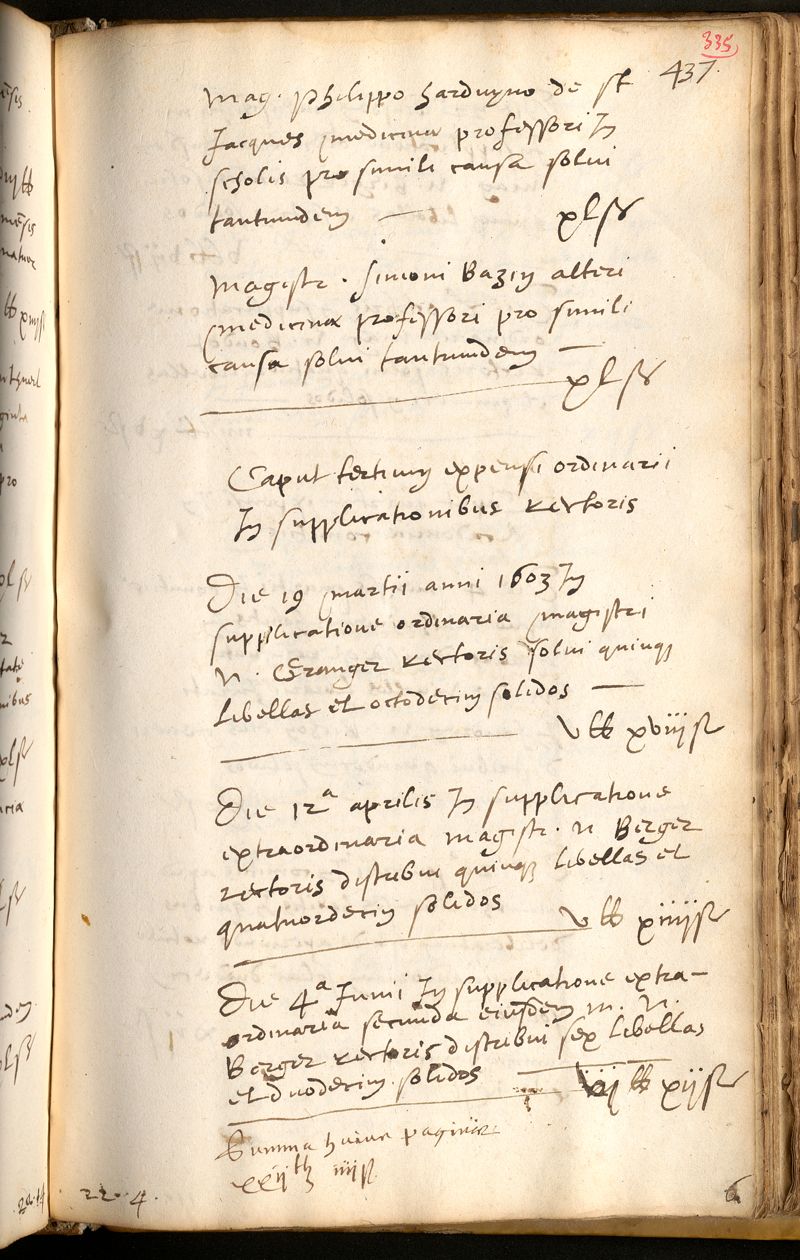 335
437.
Mag. philippo harduyno de st
Jacques medicinæ professori In
scholis pro simili causa solui
tantumdem — xl ß
Magistr. simoni Bazin alteri
medicinæ professori pro simili
causa solui tantumdem —
xl ß
Caput tertium expensi ordinarii
In supplicationibus Rectoris
Die 19 martii anni 1603 In
supplicatione ordinaria magistri
N. Granger Rectoris solui quinque
libellas et octodecim solidos —
v ℔ xviij ß
Die 12a aprilis In supplicatione
extraordinaria magistr. N Berger
rectoris distribui quinque libellas et
quatuordecim solidos v ℔ xiiij ß
Die 4a Junii In supplicatione extra-
ordinaria secunda eiusdem m. N.
Berger Rectoris distribui sex libellas
et duodecim solidos — vj ℔ xij ß
Summa huius paginæ
xxij ℔ iiij ß
22. 4.